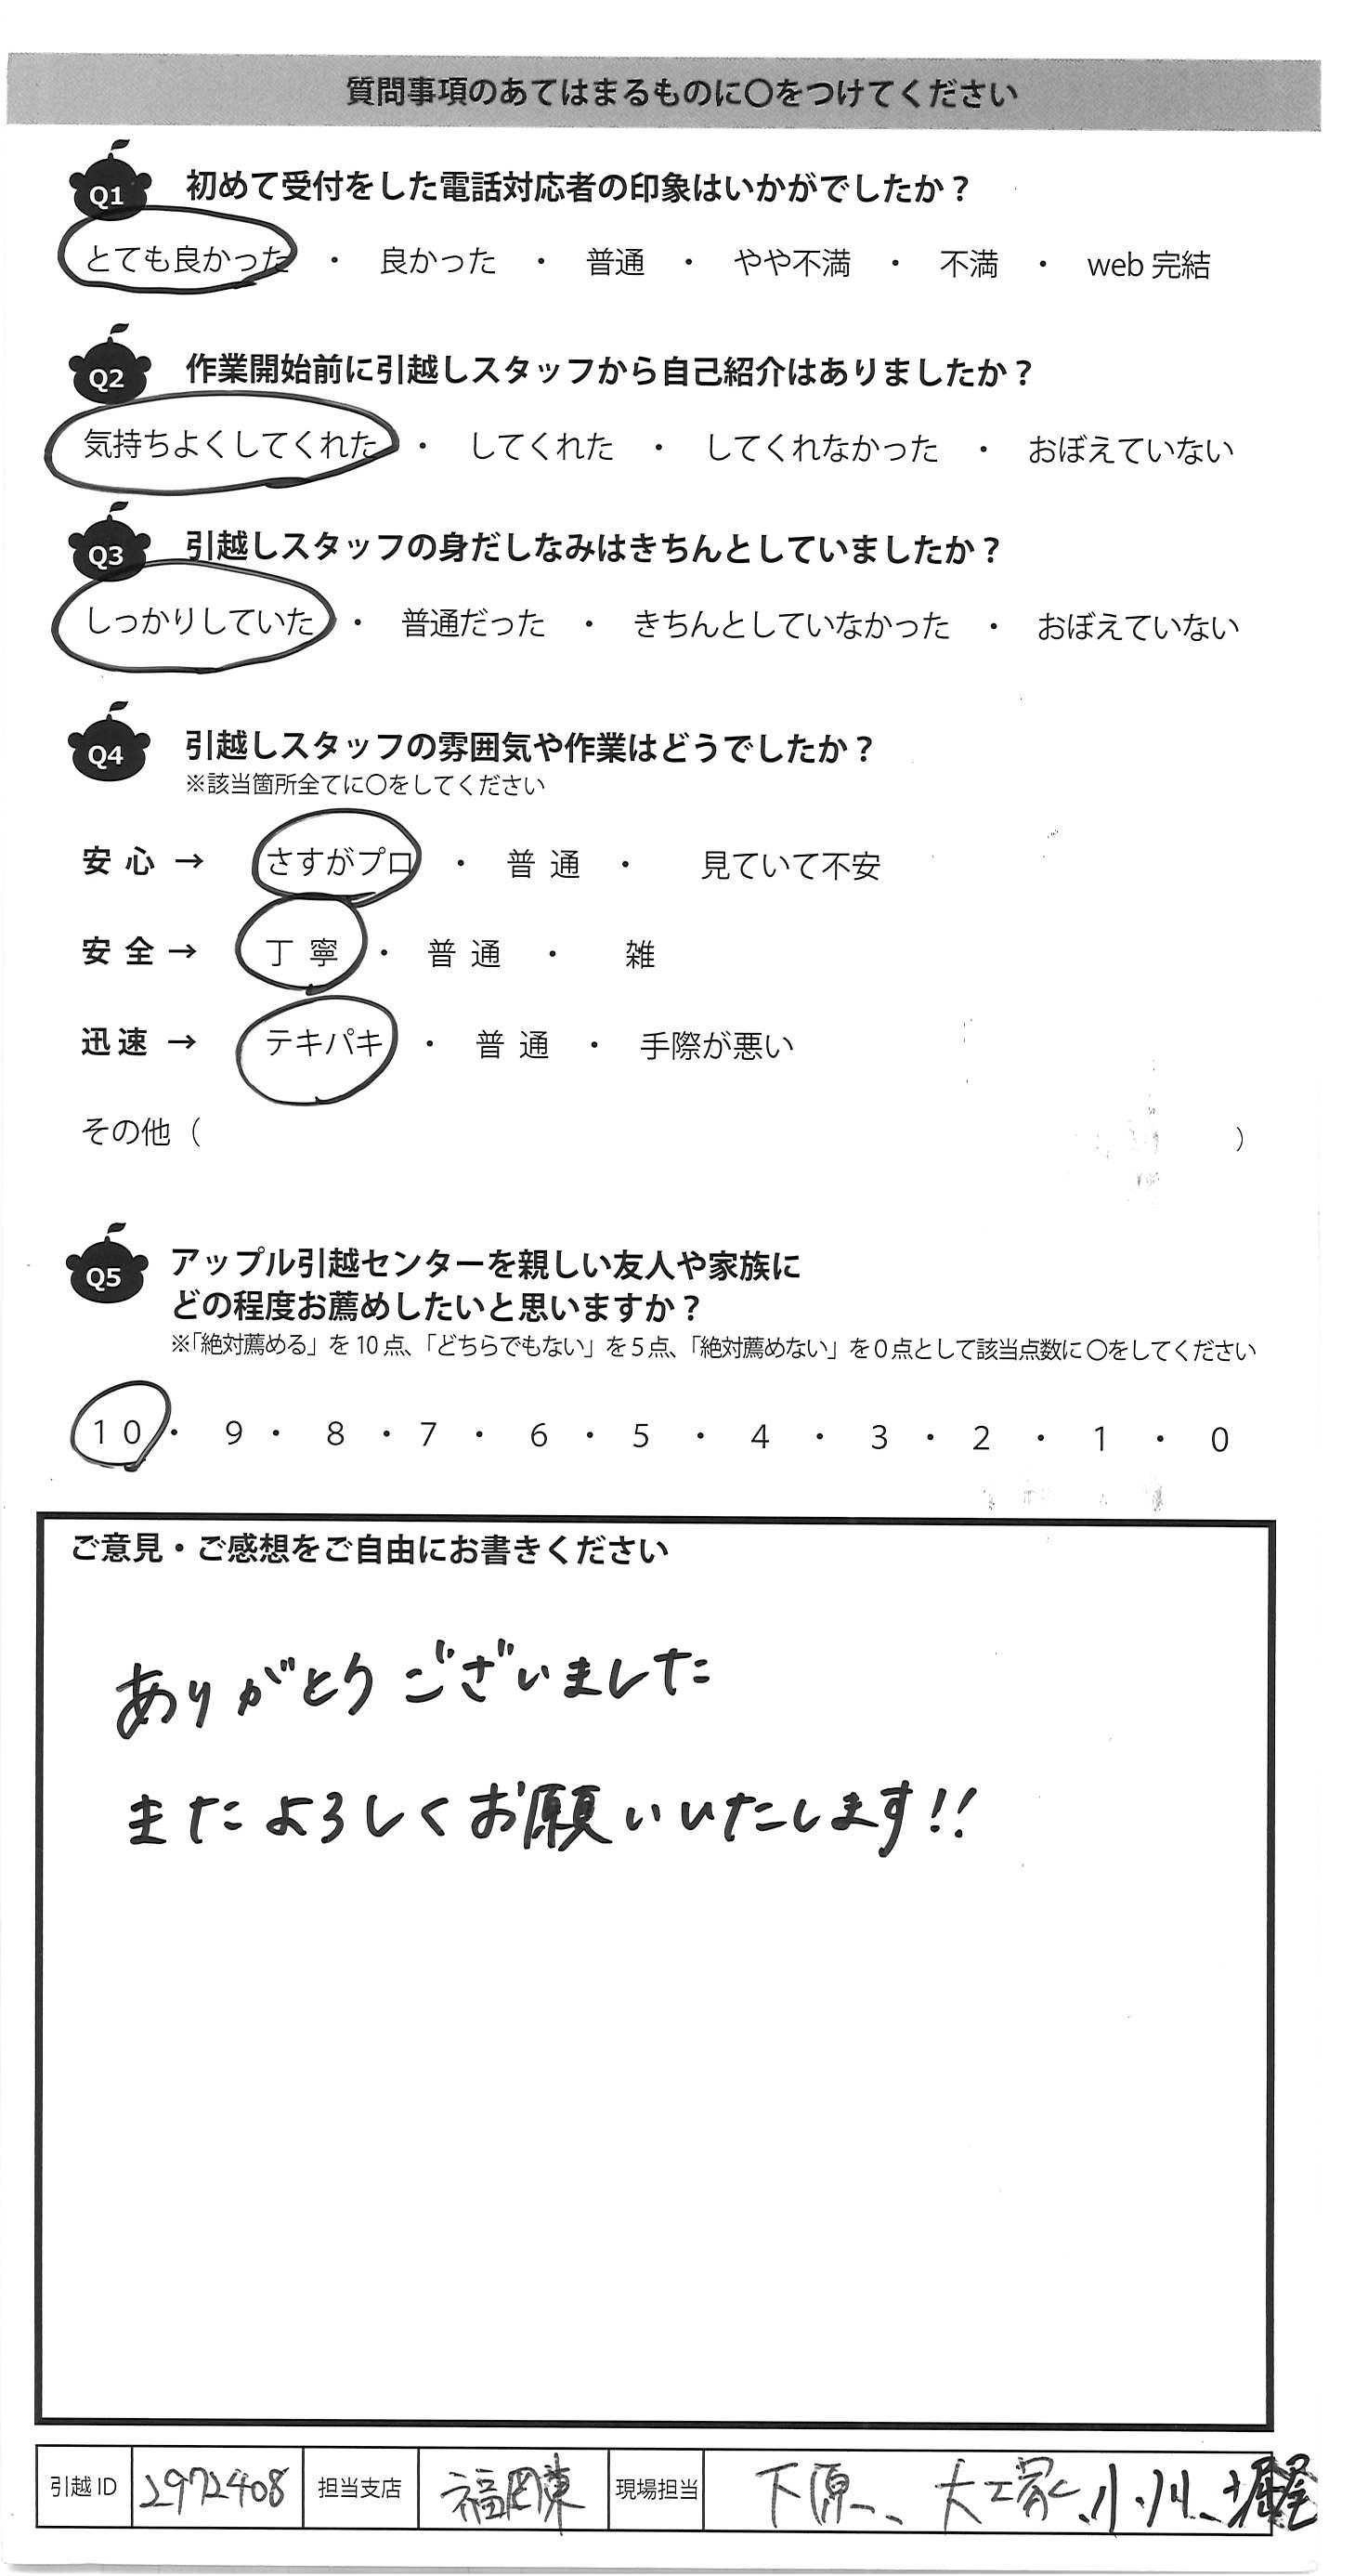 質問事項のあてはまるものに〇をつけてください
Q1 初めて受付をした電話対応者の印象はいかがでしたか？
とても良かった ・ 良かった ・ 普通 ・ やや不満 ・ 不満 ・ web 完結
Q2 作業開始前に引越しスタッフから自己紹介はありましたか？
気持ちよくしてくれた ・ してくれた ・ してくれなかった ・ おぼえていない
Q3 引越しスタッフの身だしなみはきちんとしていましたか？
しっかりしていた ・ 普通だった ・ きちんとしていなかった ・ おぼえていない
Q4 引越しスタッフの雰囲気や作業はどうでしたか？
※該当箇所全てに〇をしてください
安心 → さすがプロ ・ 普通 ・ 見ていて不安
安全 → 丁寧 ・ 普通 ・ 雑
迅速 → テキパキ ・ 普通 ・ 手際が悪い
その他（ ）
Q5 アップル引越センターを親しい友人や家族に
どの程度お薦めしたいと思いますか？
※「絶対薦める」を 10 点、「どちらでもない」を 5 点、「絶対薦めない」を 0 点として該当点数に〇をしてください
10 ・ 9 ・ 8 ・ 7 ・ 6 ・ 5 ・ 4 ・ 3 ・ 2 ・ 1 ・ 0
ご意見・ご感想をご自由にお書きください
ありがとうございました
またよろしくお願いいたします!!
引越 ID 2972408 担当支店 福岡東 現場担当 下原、大塚、小川、